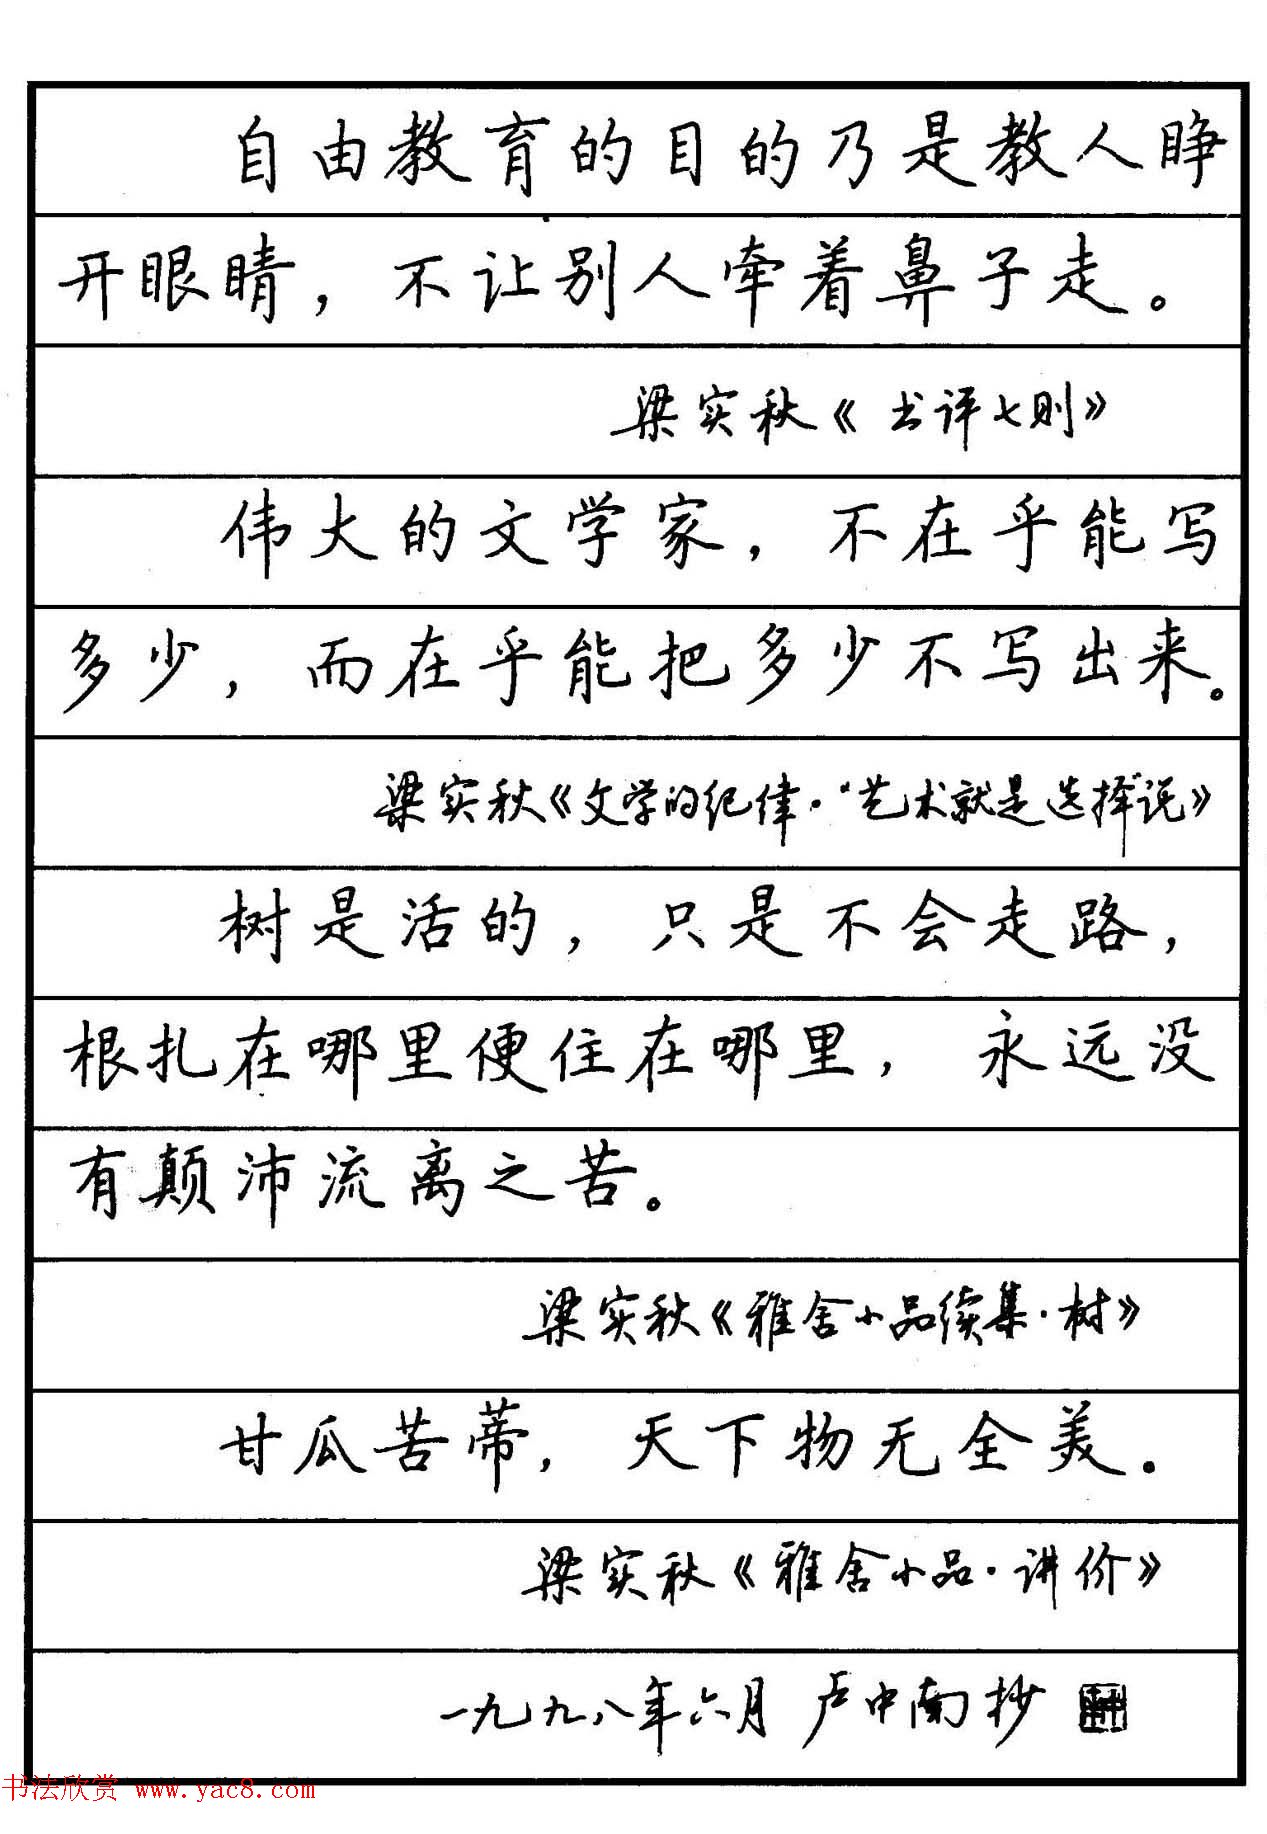 自由教育的目的乃是教人睁
开眼睛，不让别人牵着鼻子走。
梁实秋《书评七则》
伟大的文学家，不在乎能写
多少，而在乎能把多少不写出来。
梁实秋《文学的纪律·“艺术就是选择”说》
树是活的，只是不会走路，
根扎在哪里便住在哪里，永远没
有颠沛流离之苦。
梁实秋《雅舍小品续集·树》
甘瓜苦蒂，天下物无全美。
梁实秋《雅舍小品·讲价》
一九九八年六月 卢中南抄
书法欣赏 www.yac8.com